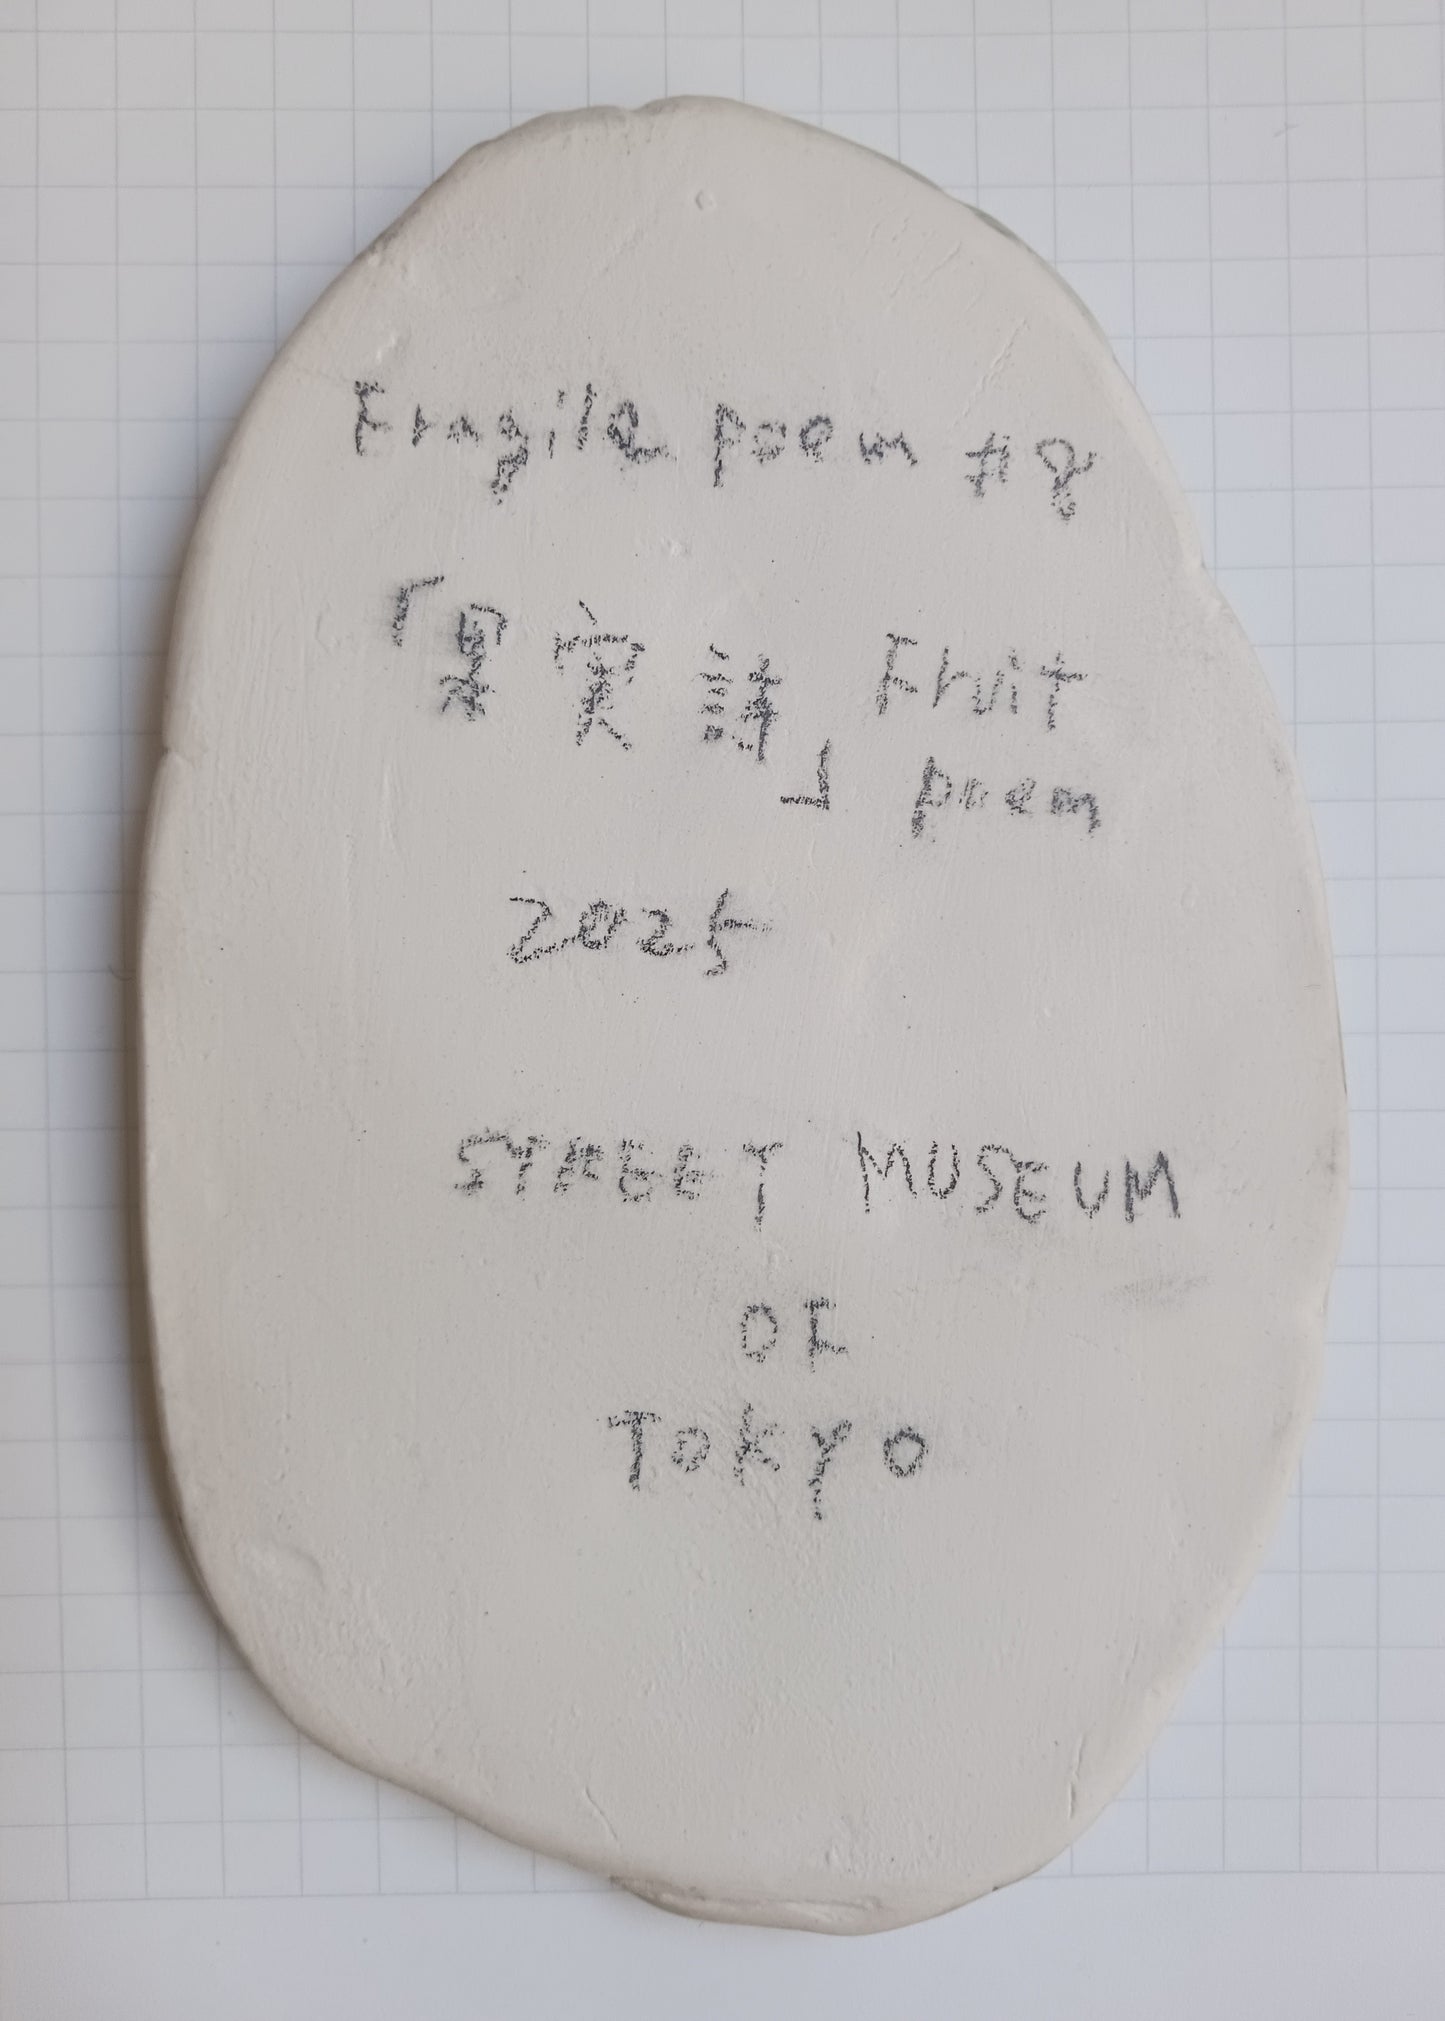 Fragile poem #8
「果実詩」 Fruit
poem
2025
STREET MUSEUM
OF
TOKYO